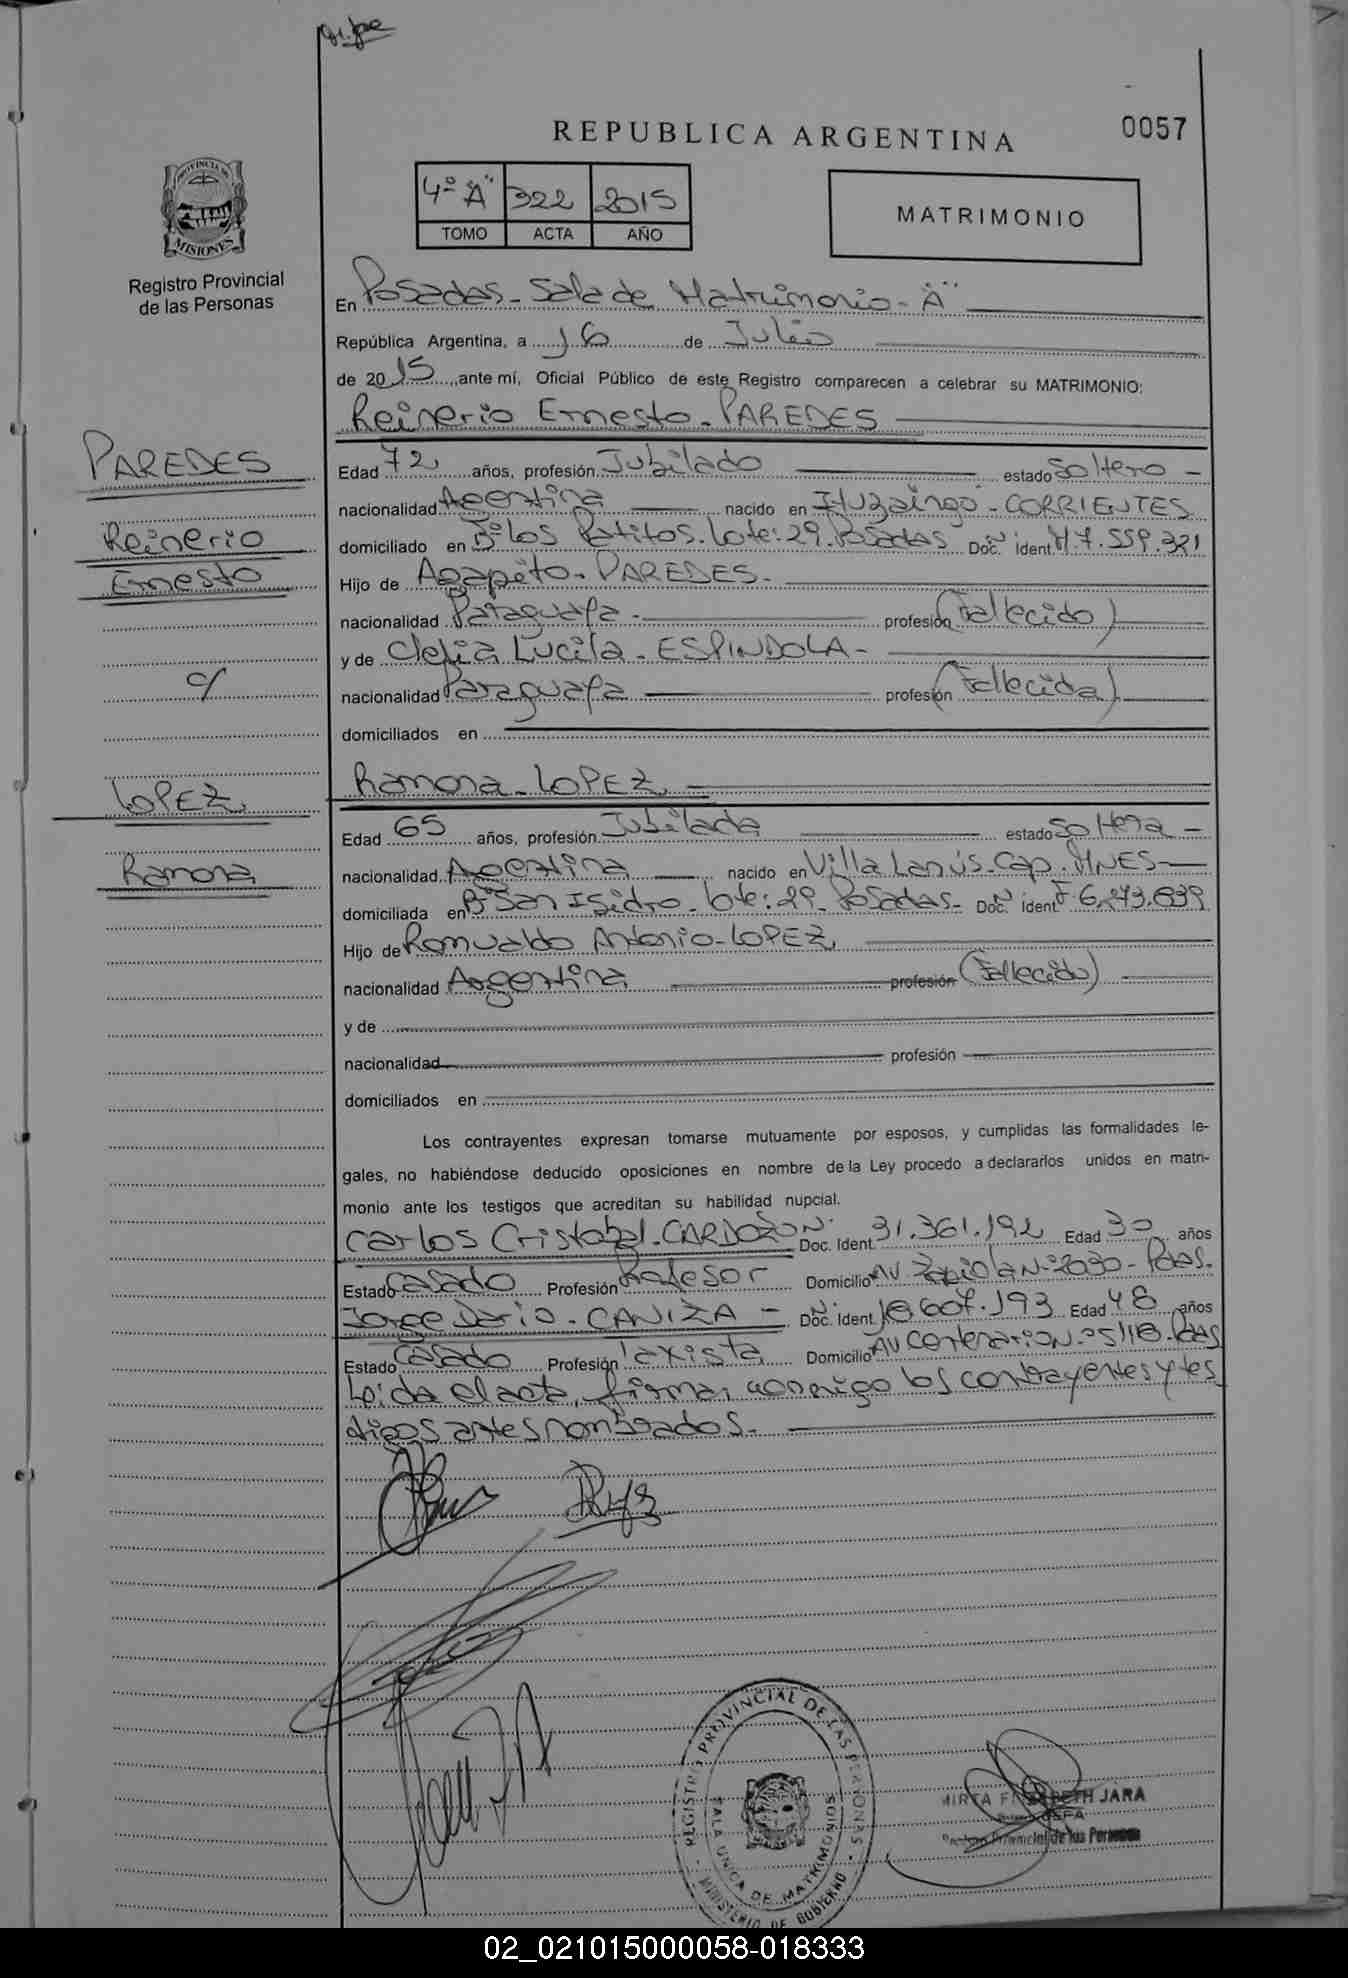 0057
REPUBLICA ARGENTINA
4º "A" 322 2015
TOMO ACTA AÑO
MATRIMONIO
PROVINCIA DE
MISIONES
Registro Provincial
de las Personas
En Posadas - Sala de Matrimonio - "A"
República Argentina, a 16 de Julio
de 2015, ante mí, Oficial Público de este Registro comparecen a celebrar su MATRIMONIO:
Reinerio Ernesto - PAREDES
PAREDES
Reinerio
Ernesto
c/
LOPEZ
Ramona
Edad 72 años, profesión Jubilado estado Soltero -
nacionalidad Argentina nacido en Ituzaingó - CORRIENTES
domiciliado en Bº los Patitos. Lote: 29. Posadas Nº Doc. Ident M 7.559.321
Hijo de Agapito - PAREDES -
nacionalidad Paraguaya - profesión (Fallecido)
y de Clelia Lucila - ESPINDOLA -
nacionalidad Paraguaya profesión (Fallecida)
domiciliados en
Ramona - LOPEZ -
Edad 65 años, profesión Jubilada estado Soltera -
nacionalidad Argentina nacido en Villa Lanús - Cap. MNES -
domiciliada en Bº San Isidro - lote: 29 - Posadas - Nº Doc. Ident F 6.273.839
Hijo de Romualdo Antonio - LOPEZ
nacionalidad Argentina profesión (Fallecido)
y de
nacionalidad profesión
domiciliados en
Los contrayentes expresan tomarse mutuamente por esposos, y cumplidas las formalidades le-
gales, no habiéndose deducido oposiciones en nombre de la Ley procedo a declararlos unidos en matri-
monio ante los testigos que acreditan su habilidad nupcial.
Carlos Cristobal - CARDOZO Nº Doc. Ident. 31.361.192 Edad 30 años
Estado Casado Profesión Profesor Domicilio Av. Zapiola Nº 2030 - Pdas.
Jorge Dario - CANIZA - Nº Doc. Ident. 18.607.193 Edad 48 años
Estado Casado Profesión Taxista Domicilio Av Centenario Nº 5118 - Pdas
Leida el acta, firman conmigo los contrayentes y tes
tigos antes nombrados.
REGISTRO PROVINCIAL DE LAS PERSONAS
SALA UNICA DE MATRIMONIOS
MINISTERIO DE GOBIERNO
MIRTA ELIZABETH JARA
JEFA
Registro Provincial de las Personas
02_021015000058-018333